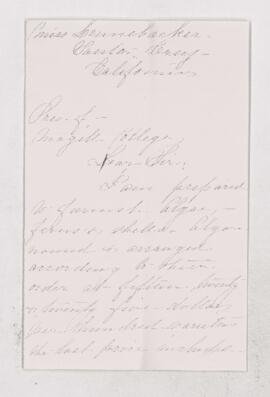 Miss Lennebacker.
Santa Cruz –
California
Pres. of –
McGill College
Dear Sir:
I am prepared
to furnish Algae –
ferns & shells. Algae
mound & arranged
according to their
order at fifteen, twenty
& twenty five dollars
per hundred varieties
the last price includes